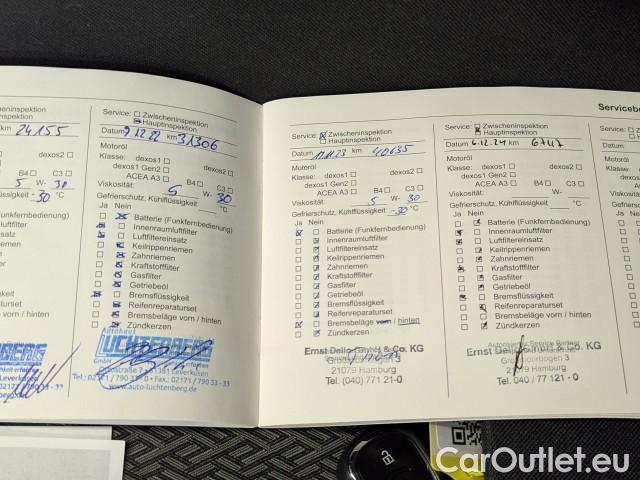 Servicebe
Zwischeninspektion
Hauptinspektion
km 24155
dexos2
B4 C3
5 W- 30
-30 °C
Service: Zwischeninspektion
Hauptinspektion
Datum 9.12.22 km 31306
Motoröl
Klasse: dexos1 dexos2
dexos1 Gen2
ACEA A3 B4 C3
Viskosität: 5 W- 30
Gefrierschutz, Kühlflüssigkeit °C
Ja Nein
Batterie (Funkfernbedienung)
Innenraumluftfilter
Luftfiltereinsatz
Keilrippenriemen
Zahnriemen
Kraftstofffilter
Gasfilter
Getriebeöl
Bremsflüssigkeit
Reifenreparaturset
Bremsbeläge vorn / hinten
Zündkerzen
Autohaus
LUCHTENBERG
GmbH
51381 Leverkusen
Tel.: 02171 / 790 33-0 • Fax: 02171 / 790 33 - 33
www.auto-luchtenberg.de
Service: Zwischeninspektion
Hauptinspektion
Datum 17.11.23 km 40635
Motoröl
Klasse: dexos1 dexos2
dexos1 Gen2
ACEA A3 B4 C3
Viskosität: 5 W- 30
Gefrierschutz, Kühlflüssigkeit -30 °C
Ja Nein
Batterie (Funkfernbedienung)
Innenraumluftfilter
Luftfiltereinsatz
Keilrippenriemen
Zahnriemen
Kraftstofffilter
Gasfilter
Getriebeöl
Bremsflüssigkeit
Reifenreparaturset
Bremsbeläge vorn / hinten
Zündkerzen
Ernst Dello GmbH & Co. KG
21079 Hamburg
Tel. (040) 771 21-0
Service: Zwischeninspektion
Hauptinspektion
Datum 6.12.24 km
Motoröl
Klasse: dexos1 dexos2
dexos1 Gen2
ACEA A3 B4 C3
Viskosität: W-
Gefrierschutz, Kühlflüssigkeit °C
Ja Nein
Batterie (Funkfernbedienung)
Innenraumluftfilter
Luftfiltereinsatz
Keilrippenriemen
Zahnriemen
Kraftstofffilter
Gasfilter
Getriebeöl
Bremsflüssigkeit
Reifenreparaturset
Bremsbeläge vorn / hinten
Zündkerzen
Ernst Dello GmbH & Co. KG
21079 Hamburg
Tel. 040 / 77 121-0
CarOutlet.eu